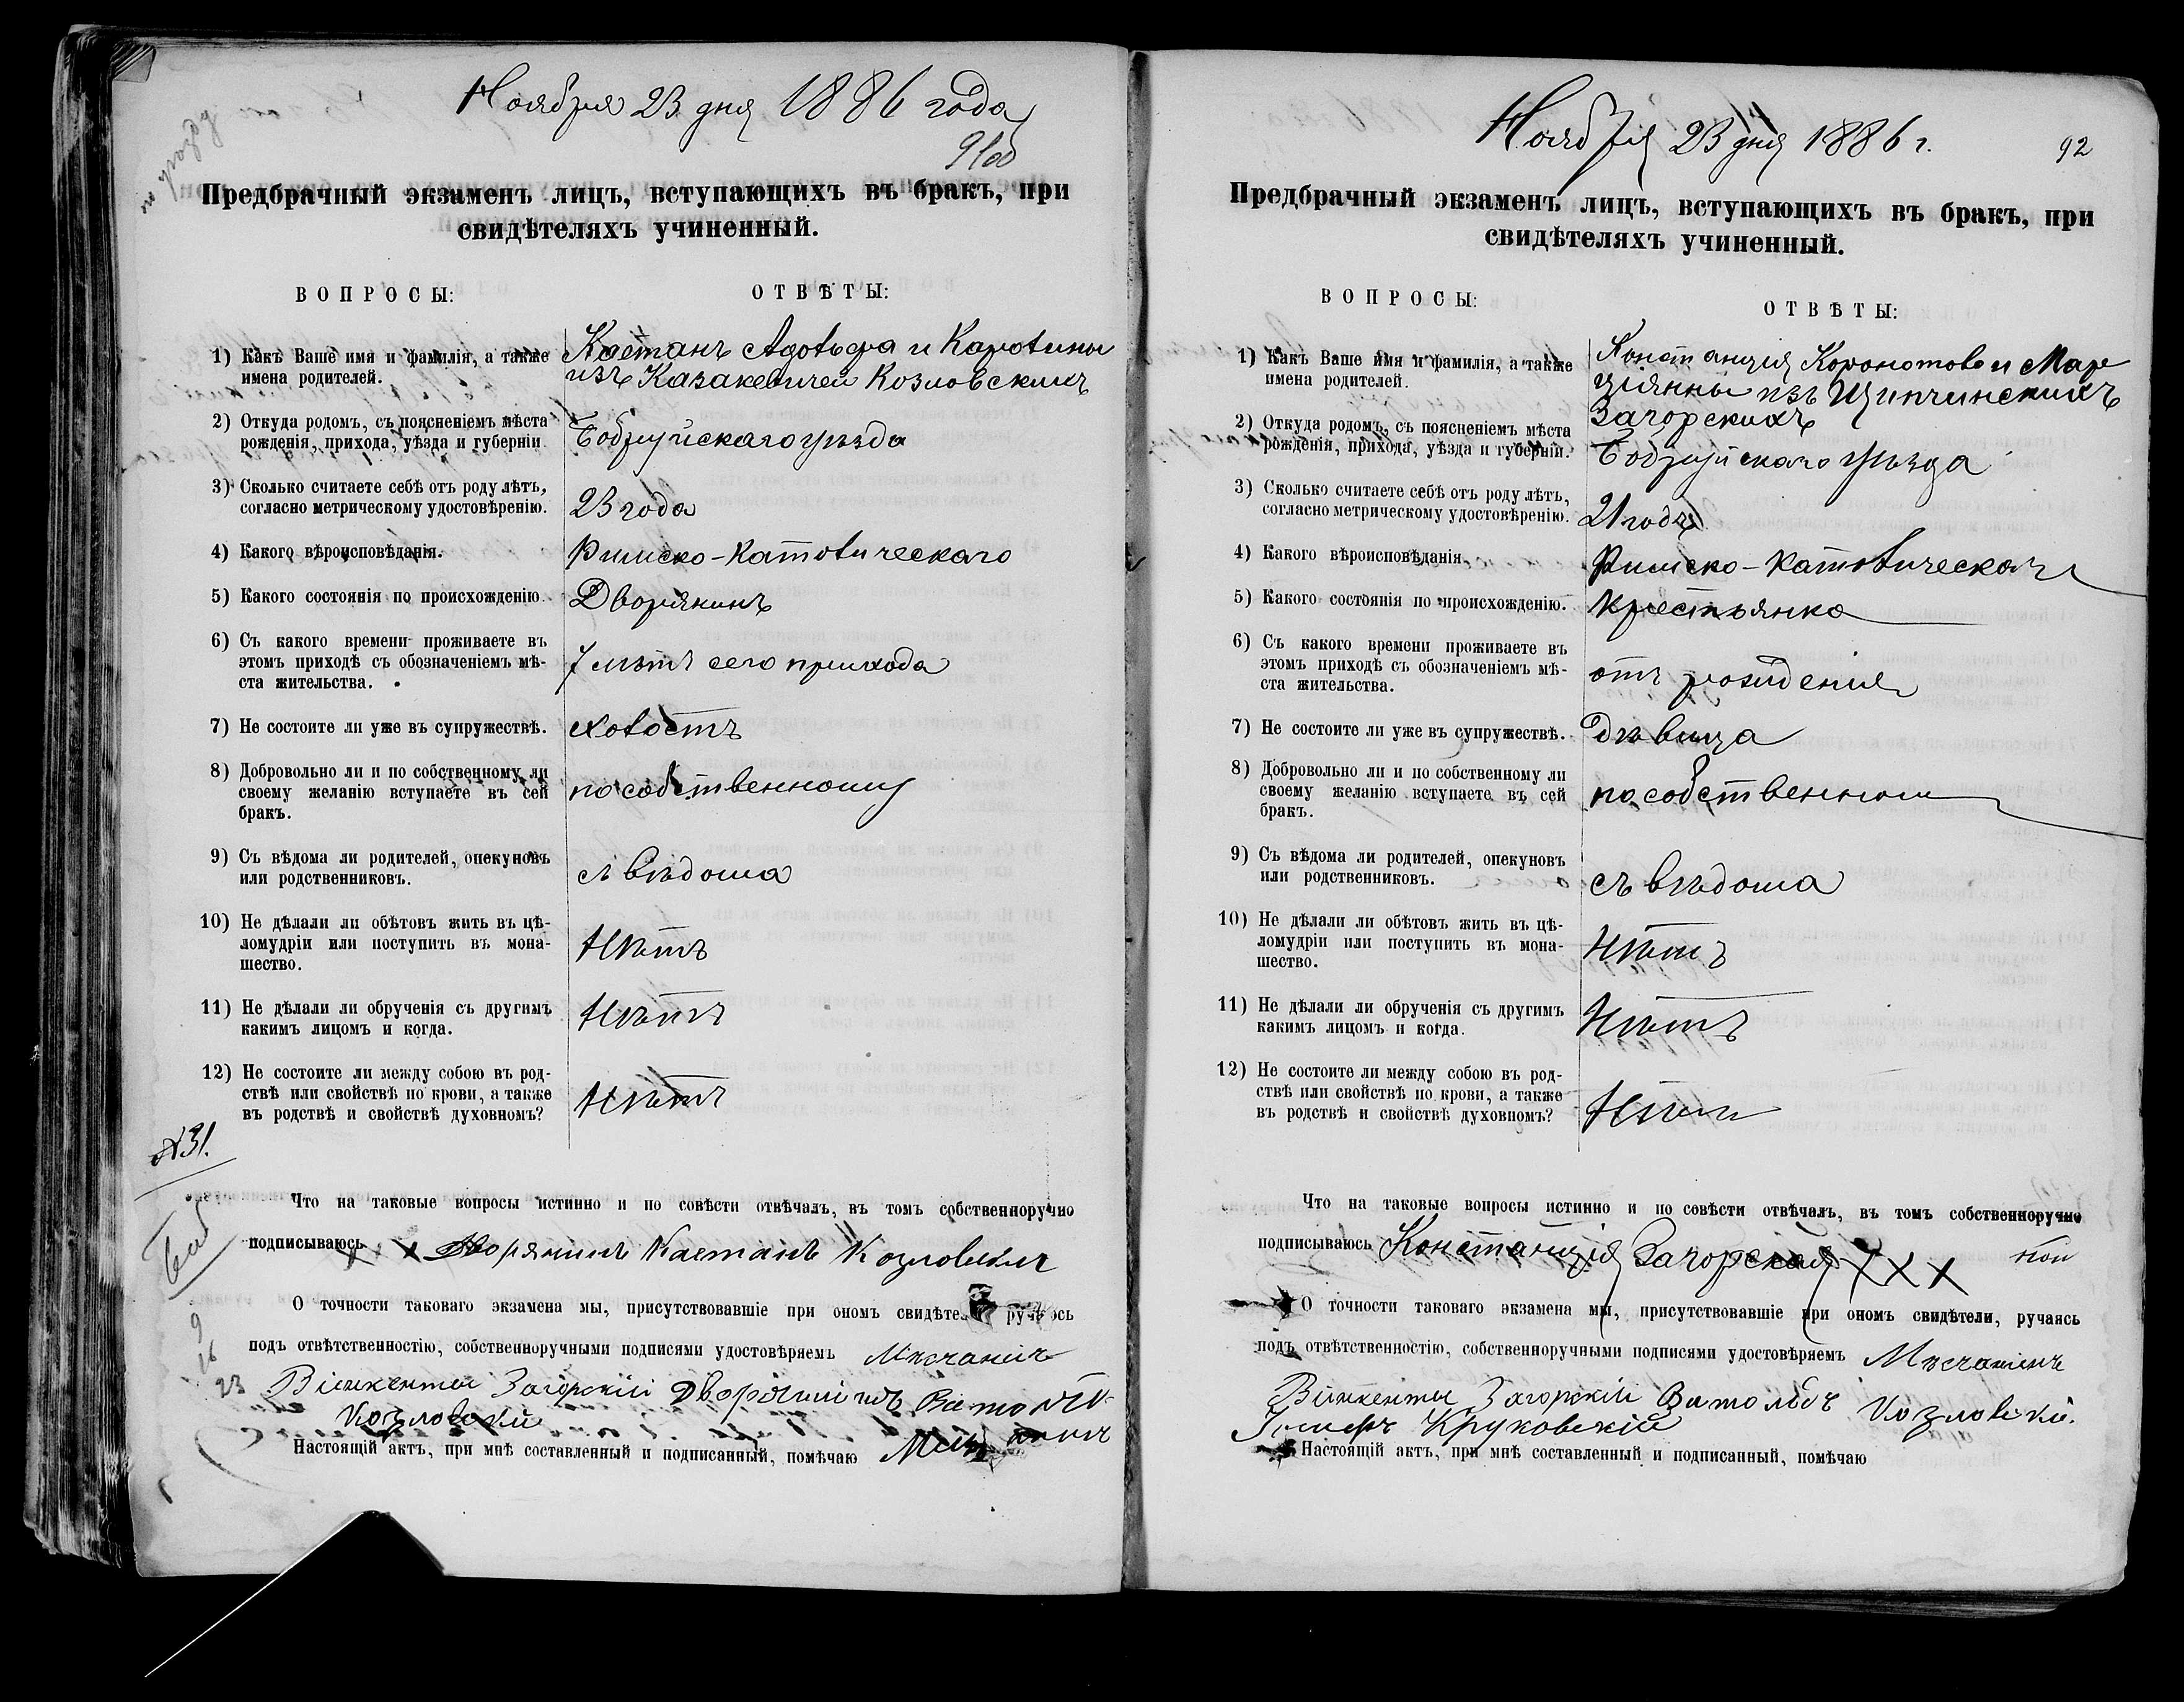 Ноября 23 дня 1886 года
91об
Предбрачный экзаменъ лицъ, вступающихъ въ бракъ, при
свидѣтеляхъ учиненный.
ВОПРОСЫ:
ОТВѢТЫ:
1) Какъ Ваше имя и фамилія, а также
имена родителей.
Каетанъ Адольфа и Каролины
изъ Казакевичей Козловскихъ
2) Откуда родомъ, съ поясненіемъ мѣста
рожденія, прихода, уѣзда и губерніи.
Бобруйскаго уѣзда
3) Сколько считаете себѣ отъ роду лѣтъ,
согласно метрическому удостовѣренію.
23 года
4) Какого вѣроисповѣданія.
Римско-Католическаго
5) Какого состоянія по происхожденію.
Дворянинъ
6) Съ какого времени проживаете въ
этомъ приходѣ съ обозначеніемъ мѣ-
ста жительства.
7 лѣтъ сего прихода
7) Не состоите ли уже въ супружествѣ.
холостъ
8) Добровольно ли и по собственному ли
своему желанію вступаете въ сей
бракъ.
по собственному
9) Съ вѣдома ли родителей, опекуновъ
или родственниковъ.
съ вѣдома
10) Не дѣлали ли обѣтовъ жить въ цѣ-
ломудріи или поступить въ мона-
шество.
Нѣтъ
11) Не дѣлали ли обрученія съ другимъ
какимъ лицомъ и когда.
Нѣтъ
12) Не состоите ли между собою въ род-
ствѣ или свойствѣ по крови, а также
въ родствѣ и свойствѣ духовномъ?
Нѣтъ
№31.
Что на таковые вопросы истинно и по совѣсти отвѣчалъ, въ томъ собственноручно
подписываюсь х х Дворянинъ Каетанъ Козловскій
О точности таковаго экзамена мы, присутствовавшіе при ономъ свидѣтели, ручаясь
подъ отвѣтственностію, собственноручными подписями удостовѣряемъ Мѣсчанинъ
9
16
23
Винкенты Загорскій Дворянинъ Витольдъ
Козловскій
Настоящій актъ, при мнѣ составленный и подписанный, помѣчаю
Ноября 23 дня 1886 г.
92
Предбрачный экзаменъ лицъ, вступающихъ въ бракъ, при
свидѣтеляхъ учиненный.
ВОПРОСЫ:
ОТВѢТЫ:
1) Какъ Ваше имя и фамилія, а также
имена родителей.
Констанція и Мар
ціянны изъ Щипчинскихъ
Загорскихъ
2) Откуда родомъ, съ поясненіемъ мѣста
рожденія, прихода, уѣзда и губерніи.
Бобруйскаго уѣзда
3) Сколько считаете себѣ отъ роду лѣтъ,
согласно метрическому удостовѣренію.
21 годъ
4) Какого вѣроисповѣданія.
Римско-Католическаго
5) Какого состоянія по происхожденію.
Крестьянка
6) Съ какого времени проживаете въ
этомъ приходѣ съ обозначеніемъ мѣ-
ста жительства.
отъ рожденія
7) Не состоите ли уже въ супружествѣ.
Дѣвица
8) Добровольно ли и по собственному ли
своему желанію вступаете въ сей
бракъ.
по собственному
9) Съ вѣдома ли родителей, опекуновъ
или родственниковъ.
съ вѣдома
10) Не дѣлали ли обѣтовъ жить въ цѣ-
ломудріи или поступить въ мона-
шество.
Нѣтъ
11) Не дѣлали ли обрученія съ другимъ
какимъ лицомъ и когда.
Нѣтъ
12) Не состоите ли между собою въ род-
ствѣ или свойствѣ по крови, а также
въ родствѣ и свойствѣ духовномъ?
Нѣтъ
Что на таковые вопросы истинно и по совѣсти отвѣчалъ, въ томъ собственноручно
подписываюсь Констанція Загорская х х х
О точности таковаго экзамена мы, присутствовавшіе при ономъ свидѣтели, ручаясь
подъ отвѣтственностію, собственноручными подписями удостовѣряемъ Мѣсчанинъ
Винкенты Загорскій Витольдъ Козловскій.
Іосифъ Круковскій
Настоящій актъ, при мнѣ составленный и подписанный, помѣчаю